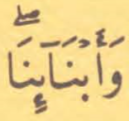 وَأَبْنَآئِنَا ۖ